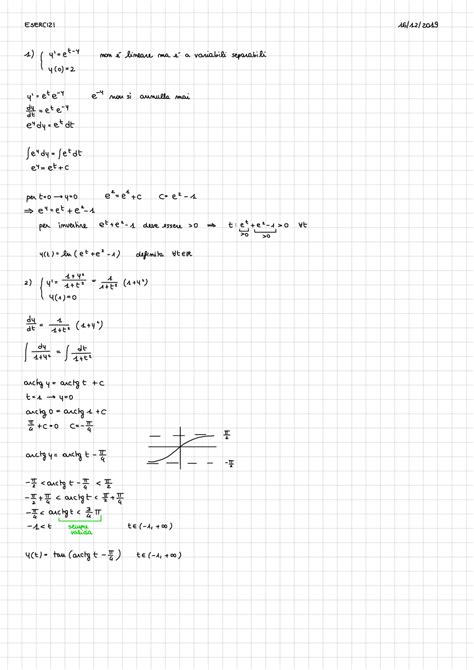 ESERCIZI 16/12/2019
1) { y' = e^{t-y} non è lineare ma è a variabili separabili
y(0) = 2
y' = e^t e^{-y} e^{-y} non si annulla mai
dy/dt = e^t e^{-y}
e^y dy = e^t dt
∫e^y dy = ∫e^t dt
e^y = e^t + c
per t=0 → y=0 e^2 = e^1 + c C = e^2 - 1
⇒ e^y = e^t + e^2 - 1
per invertire e^t + e^2 - 1 deve essere > 0 ⇒ t: e^t + e^2 - 1 > 0 ∀t
>0 >0
y(t) = ln (e^t + e^2 - 1) definita ∀t∈ℝ
2) { y' = 1+y²/1+t² = 1/1+t² (1+y²)
y(1) = 0
dy/dt = 1/1+t² (1+y²)
∫ dy/1+y² = ∫ dt/1+t²
arctg y = arctg t + C
t=1 → y=0
arctg 0 = arctg 1 + C
π/4 + C = 0 C = -π/4
π/2
arctg y = arctg t - π/4
-π/2
-π/2 < arctg t - π/4 < π/2
-π/2 + π/4 < arctg t < π/2 + π/4
-π/4 < arctg t < 3/4 π
-1 < t sempre valida t∈(-1, +∞)
y(t) = tan (arctg t - π/4) t∈(-1, +∞)